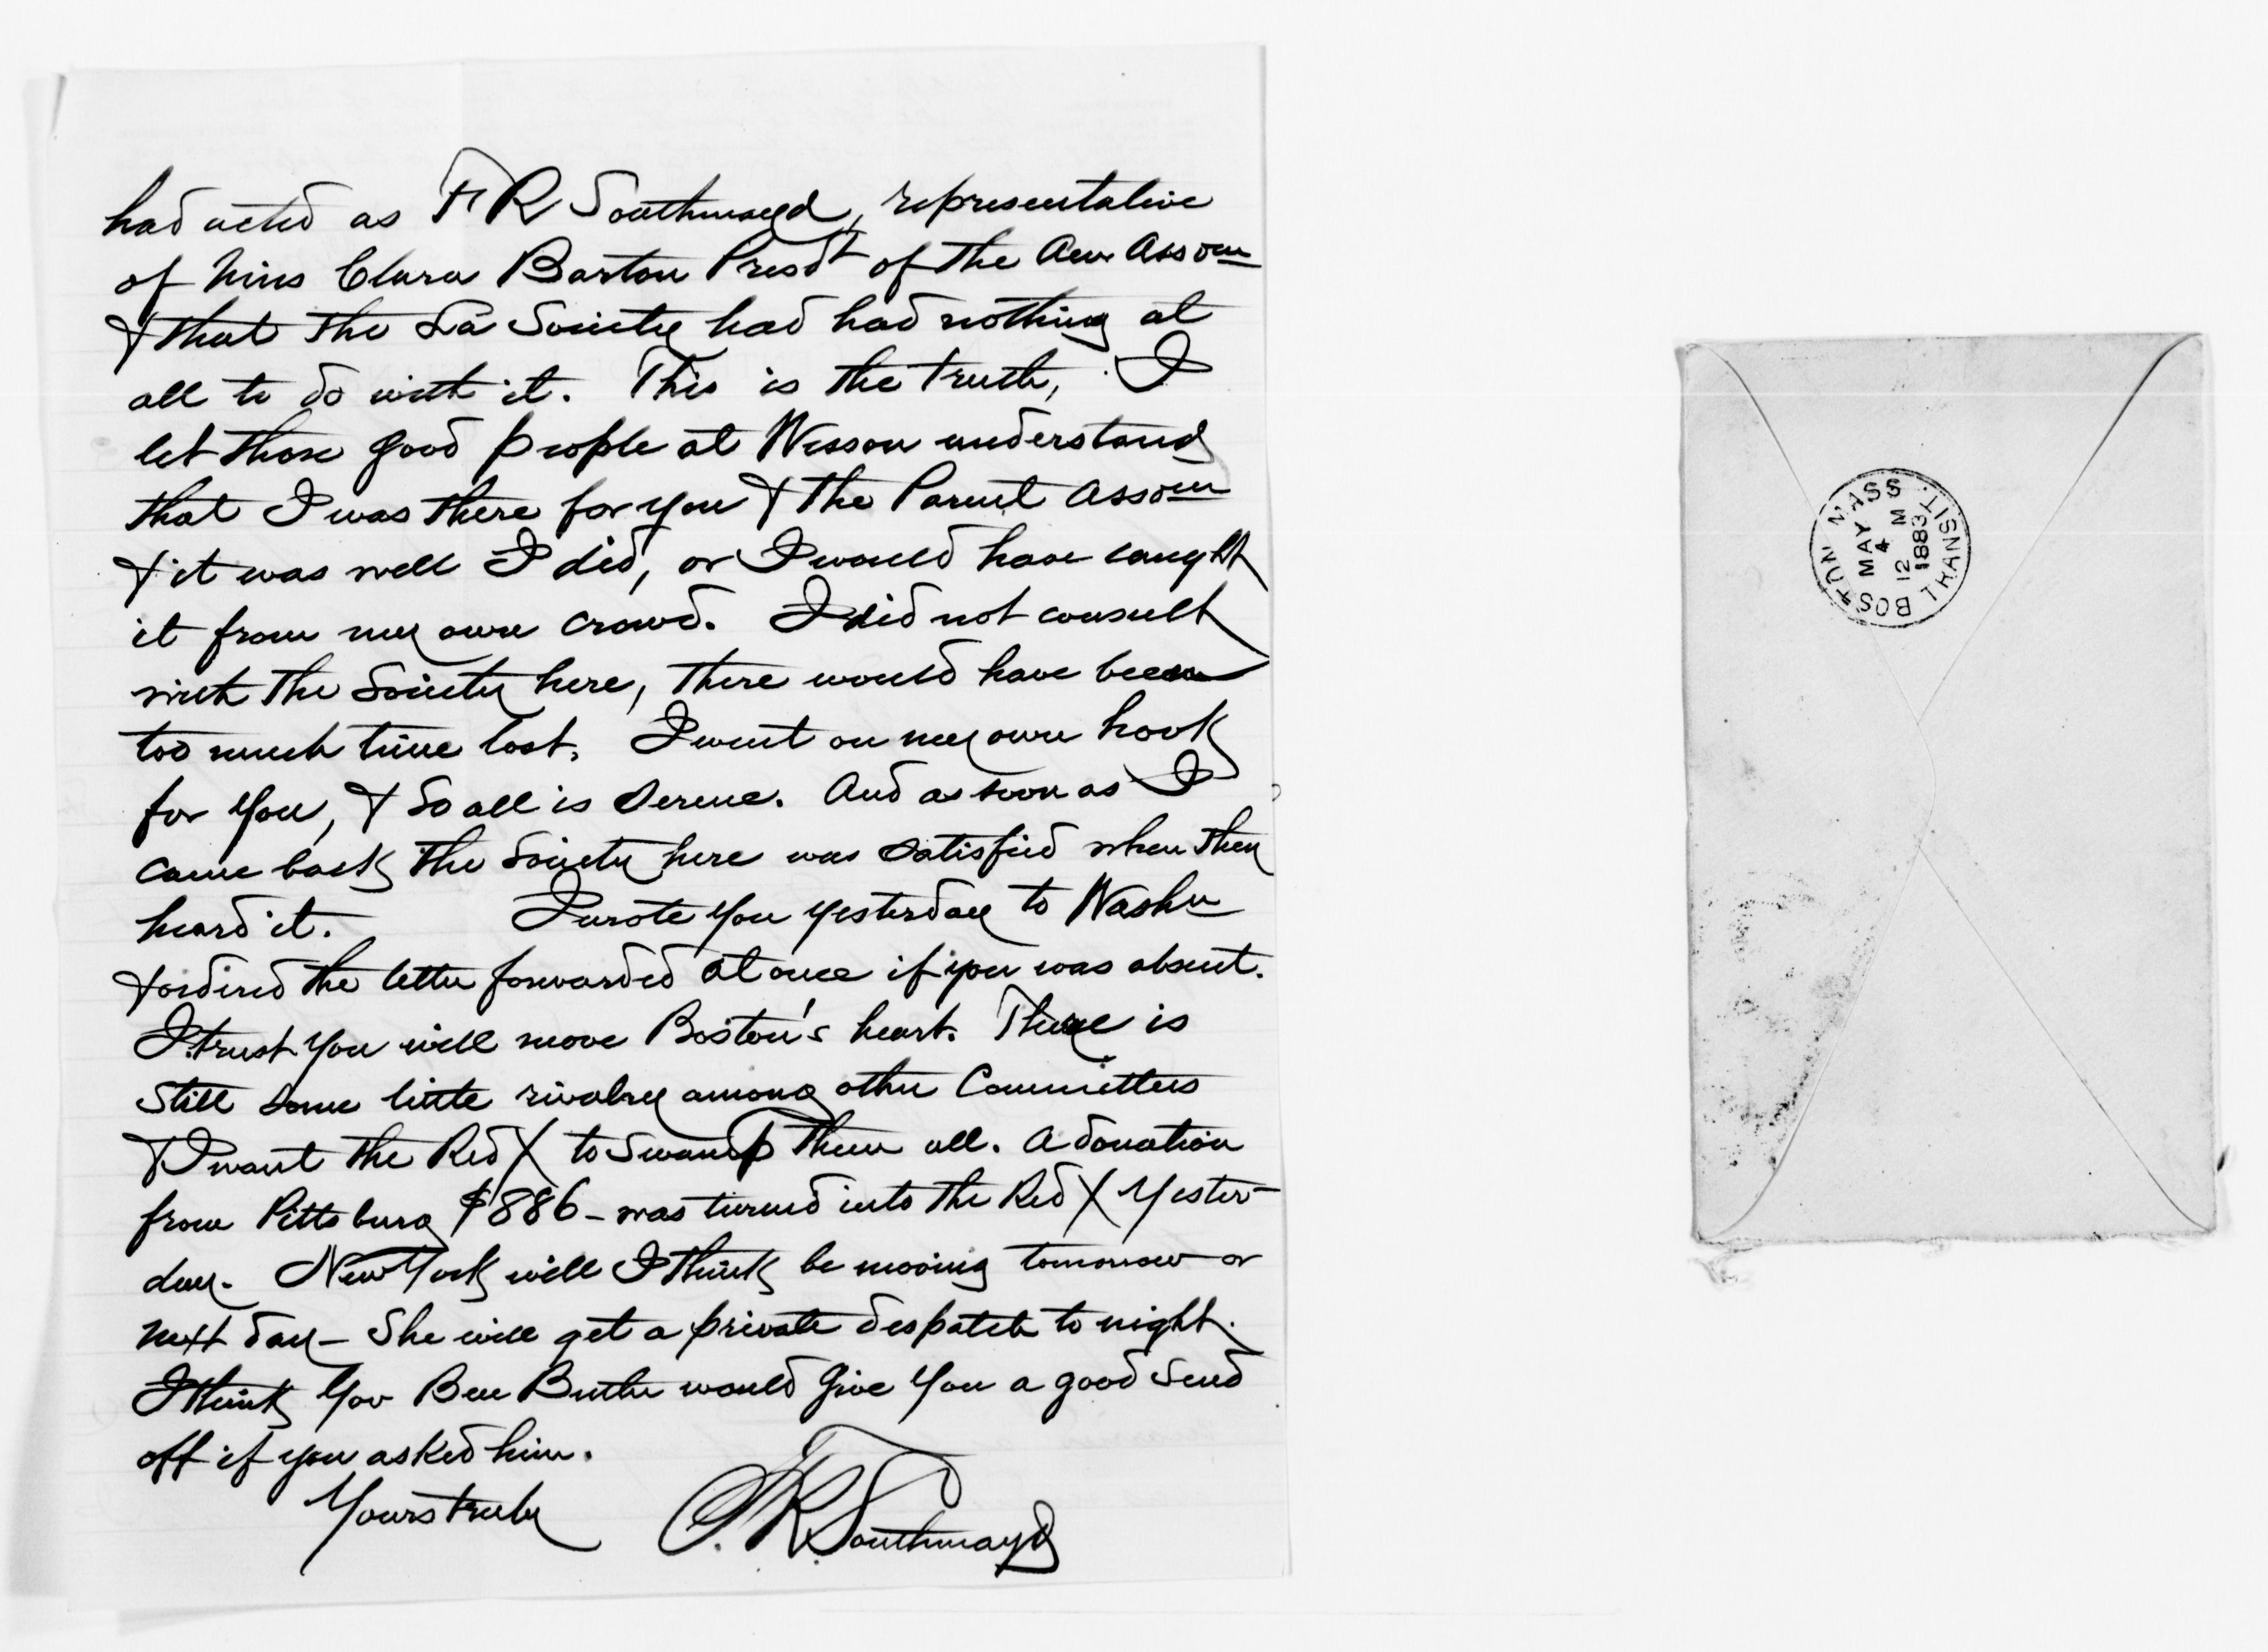 had acted as F R Southmayd, representative
of Miss Clara Barton Presdt of the Am Assocn
& that the La Society had had nothing at
all to do with it. This is the truth, I
let those good people at Wesson understand
that I was there for you & the Parent Assocn
& it was well I did, or I would have caught
it from my own crowd. I did not consult
with the Society here, there would have been
too much time lost, I went on my own hook
for you, & so all is serene. And as soon as I
came back the Society here was satisfied when they
heard it. I wrote you yesterday to Washn
& ordered the letter forwarded at once if you was absent.
I trust you will move Boston's heart. There is
still some little rivalry among other Committees
& I want the Red X to swamp them all. A donation
from Pittsburg $886 - was turned into the Red X yester-
day. New York will I think be moving tomorrow or
next day - She will get a private despatch to night.
I think Gov Ben Butler would give you a good send
off if you asked him.
Yours truly F. R. Southmayd
BOSTON MASS
MAY
4
12 M
1883
TRANSIT